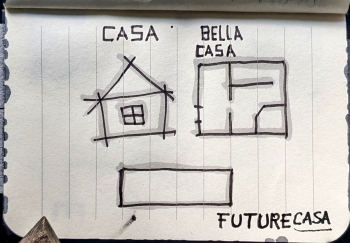 CASA
BELLA
CASA
FUTURECASA